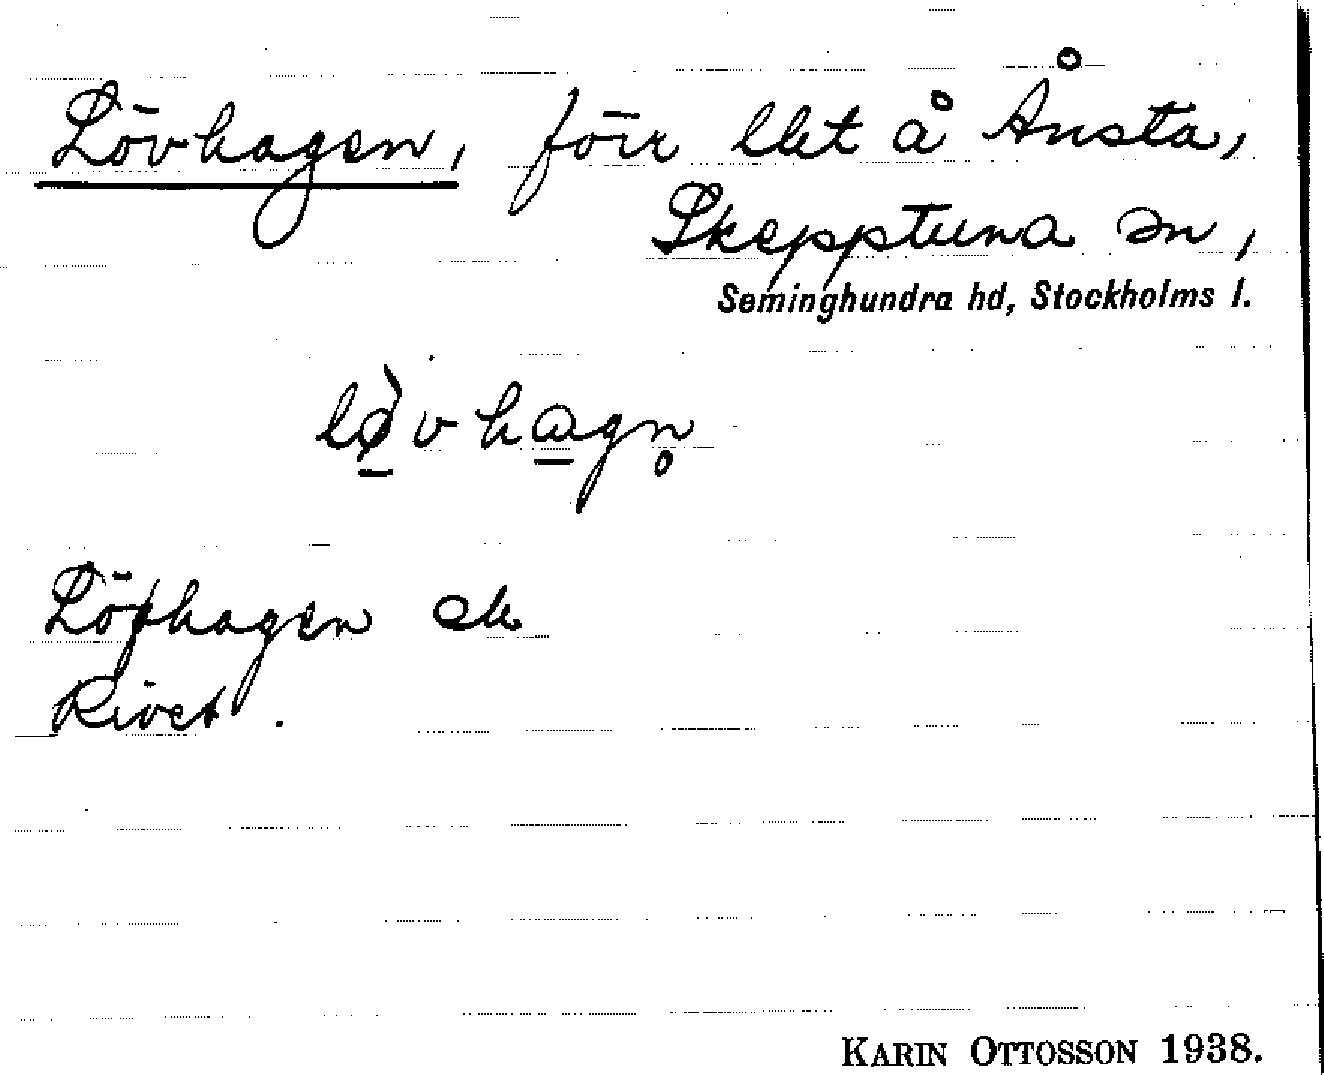 Lövhagen, förr llet å Ånsta,
Skepptuna sn,
Seminghundra hd, Stockholms l.
lø̀vhagn̥
Löfhagen ek
Rivet.
KARIN OTTOSSON 1938.